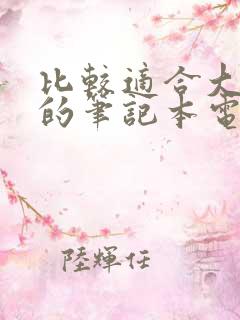 比較適合大
的筆記本電
陸輝任